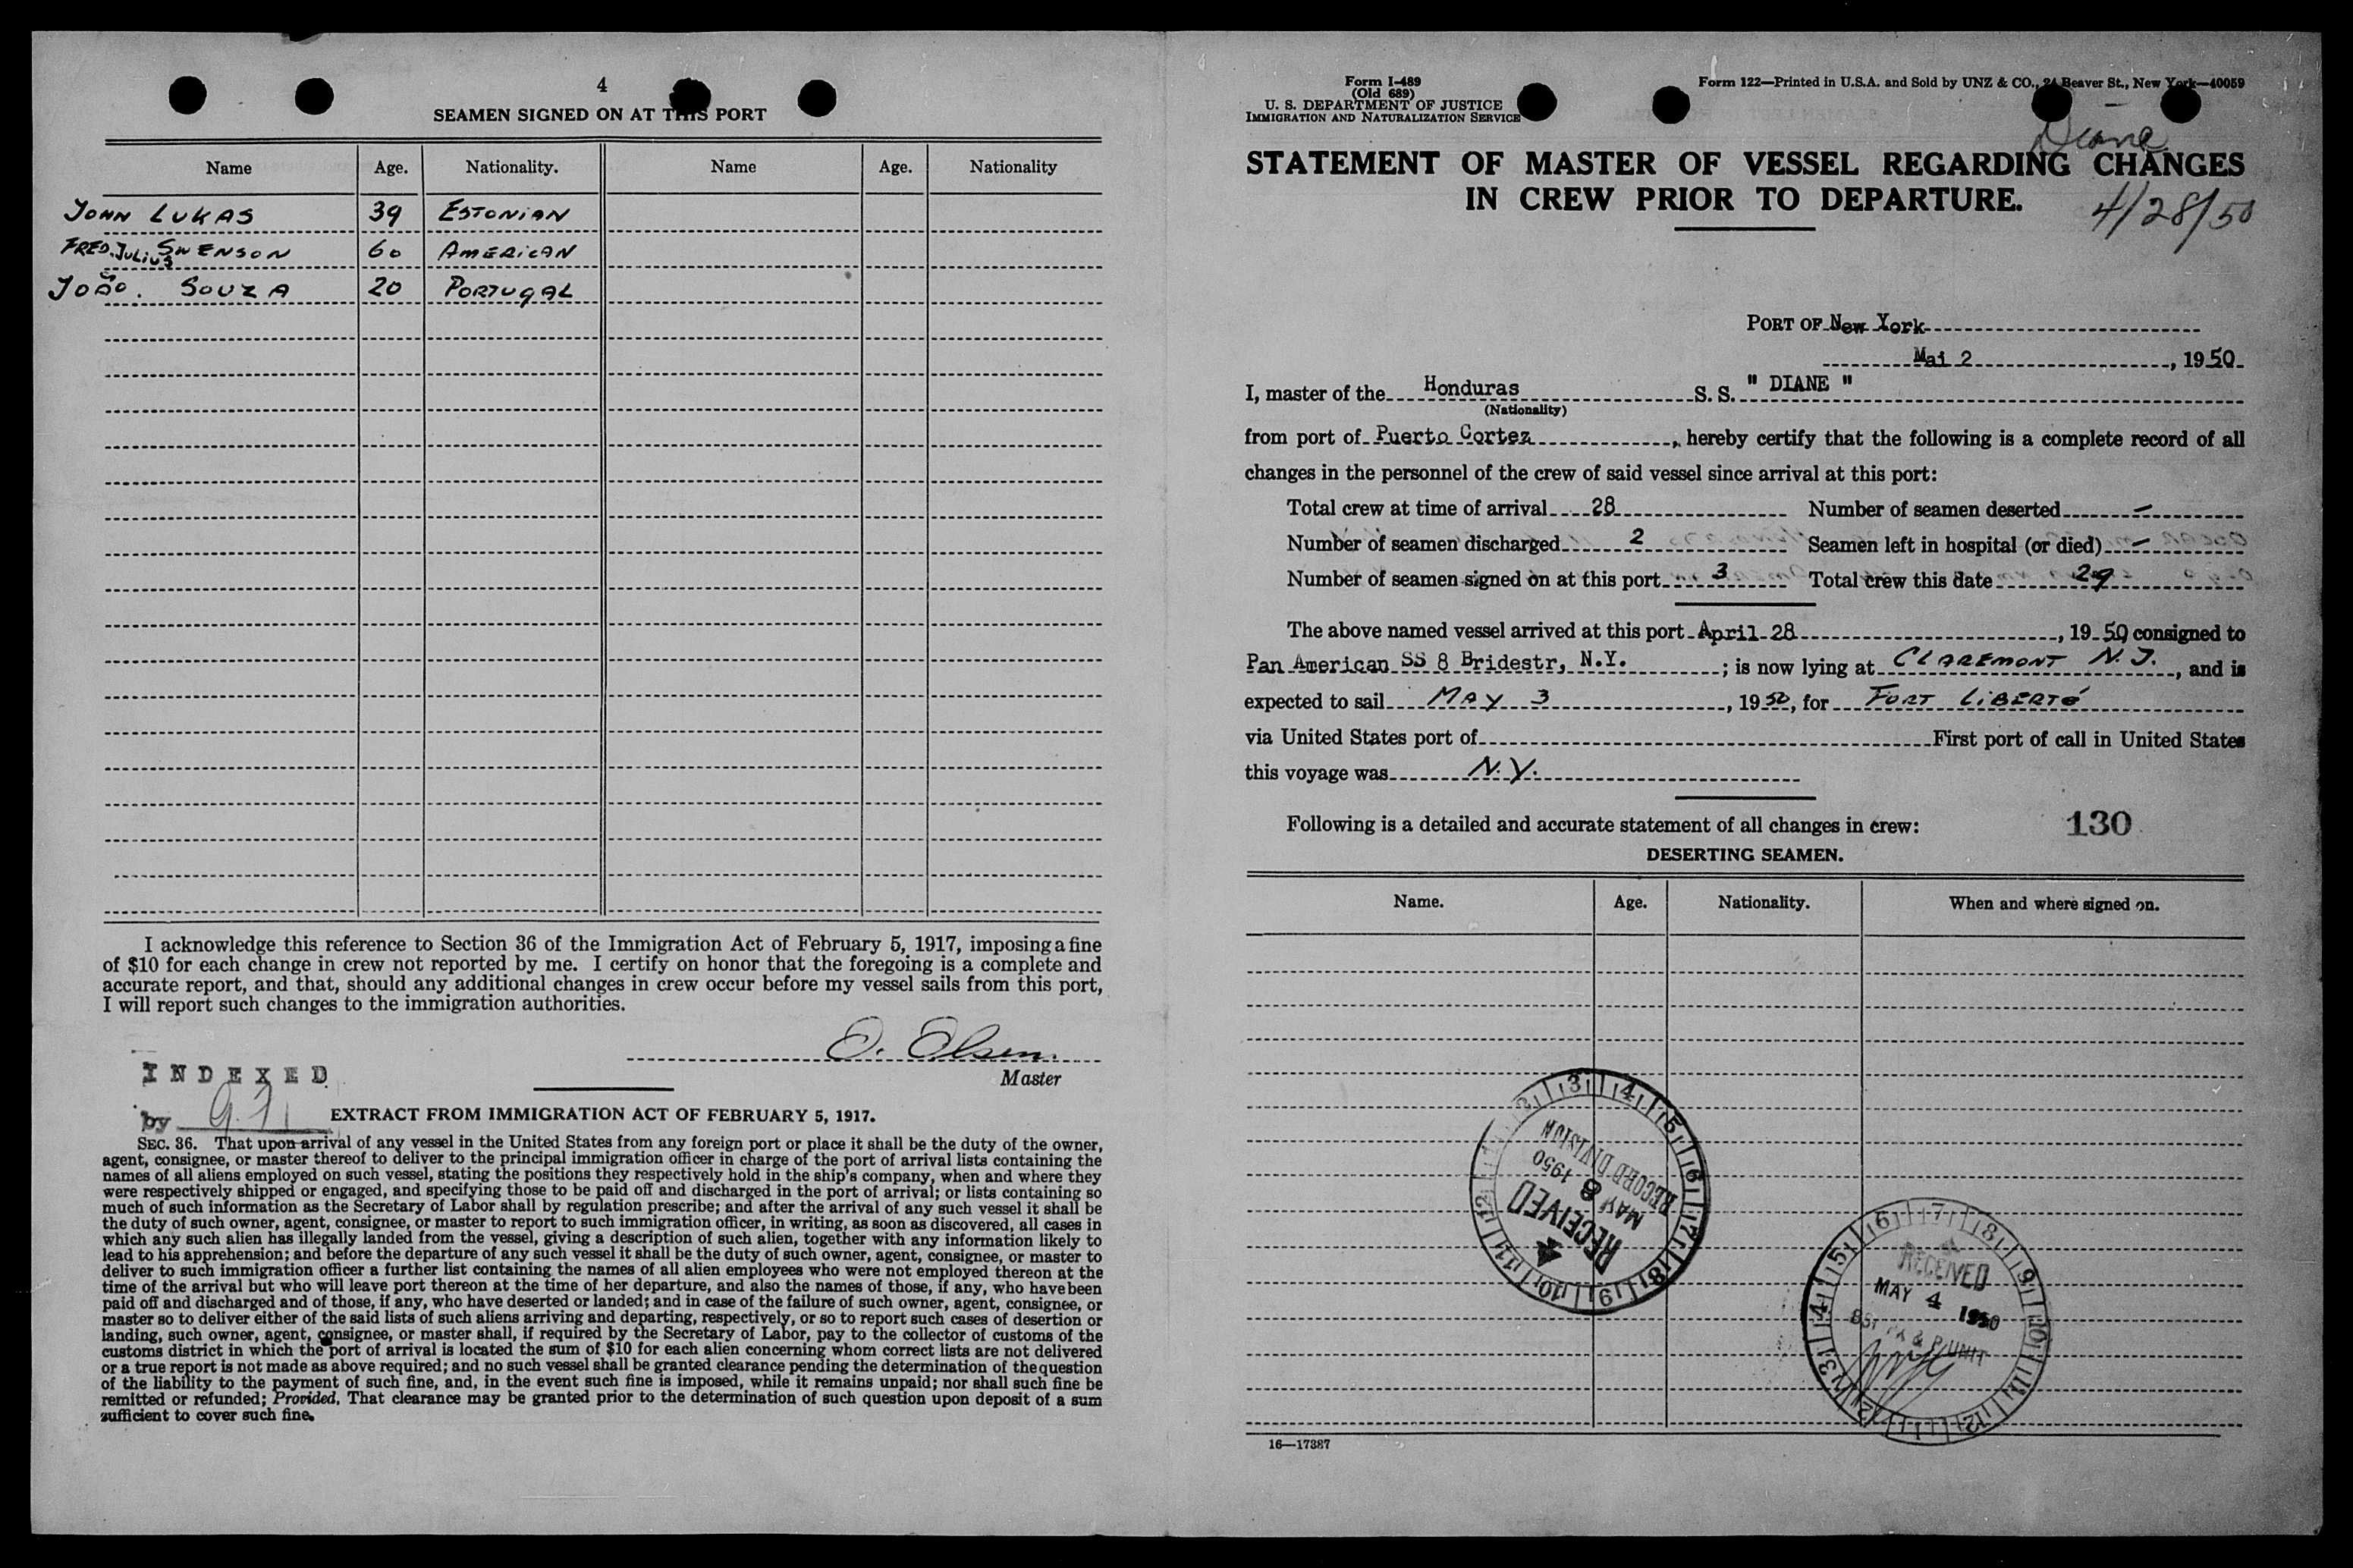 4
SEAMEN SIGNED ON AT THIS PORT
Name Age. Nationality. Name Age. Nationality
JOHN LUKAS 39 ESTONIAN
FRED. JULIUS SWENSON 60 AMERICAN
JOÃO. SOUZA 20 PORTUGAL
I acknowledge this reference to Section 36 of the Immigration Act of February 5, 1917, imposing a fine
of $10 for each change in crew not reported by me. I certify on honor that the foregoing is a complete and
accurate report, and that, should any additional changes in crew occur before my vessel sails from this port,
I will report such changes to the immigration authorities.
O. Olsen.
Master
INDEXED
by
EXTRACT FROM IMMIGRATION ACT OF FEBRUARY 5, 1917.
SEC. 36. That upon arrival of any vessel in the United States from any foreign port or place it shall be the duty of the owner,
agent, consignee, or master thereof to deliver to the principal immigration officer in charge of the port of arrival lists containing the
names of all aliens employed on such vessel, stating the positions they respectively hold in the ship's company, when and where they
were respectively shipped or engaged, and specifying those to be paid off and discharged in the port of arrival; or lists containing so
much of such information as the Secretary of Labor shall by regulation prescribe; and after the arrival of any such vessel it shall be
the duty of such owner, agent, consignee, or master to report to such immigration officer, in writing, as soon as discovered, all cases in
which any such alien has illegally landed from the vessel, giving a description of such alien, together with any information likely to
lead to his apprehension; and before the departure of any such vessel it shall be the duty of such owner, agent, consignee, or master to
deliver to such immigration officer a further list containing the names of all alien employees who were not employed thereon at the
time of the arrival but who will leave port thereon at the time of her departure, and also the names of those, if any, who have been
paid off and discharged and of those, if any, who have deserted or landed; and in case of the failure of such owner, agent, consignee, or
master so to deliver either of the said lists of such aliens arriving and departing, respectively, or so to report such cases of desertion or
landing, such owner, agent, consignee, or master shall, if required by the Secretary of Labor, pay to the collector of customs of the
customs district in which the port of arrival is located the sum of $10 for each alien concerning whom correct lists are not delivered
or a true report is not made as above required; and no such vessel shall be granted clearance pending the determination of the question
of the liability to the payment of such fine, and, in the event such fine is imposed, while it remains unpaid; nor shall such fine be
remitted or refunded; Provided, That clearance may be granted prior to the determination of such question upon deposit of a sum
sufficient to cover such fine.
Form I-489
(Old 689)
U. S. DEPARTMENT OF JUSTICE
IMMIGRATION AND NATURALIZATION SERVICE
Form 122—Printed in U.S.A. and Sold by UNZ & CO., 24 Beaver St., New York—40059
Diane
STATEMENT OF MASTER OF VESSEL REGARDING CHANGES
IN CREW PRIOR TO DEPARTURE.
4/28/50
PORT OF New York
Mai 2, 1950
I, master of the Honduras S. S. " DIANE "
(Nationality)
from port of Puerto Cortez, hereby certify that the following is a complete record of all
changes in the personnel of the crew of said vessel since arrival at this port:
Total crew at time of arrival 28 Number of seamen deserted —
Number of seamen discharged 2 Seamen left in hospital (or died) —
Number of seamen signed on at this port 3 Total crew this date 29
The above named vessel arrived at this port April 28, 1950 consigned to
Pan American SS 8 Bridestr, N.Y. ; is now lying at CLAREMONT N.J., and is
expected to sail MAY 3, 1950, for FORT LIBERTÉ
via United States port of First port of call in United States
this voyage was N.Y.
Following is a detailed and accurate statement of all changes in crew: 130
DESERTING SEAMEN.
Name. Age. Nationality. When and where signed on.
RECEIVED
MAY 8 1950
RECORD DIVISION
RECEIVED
MAY 4 1950
16—17387